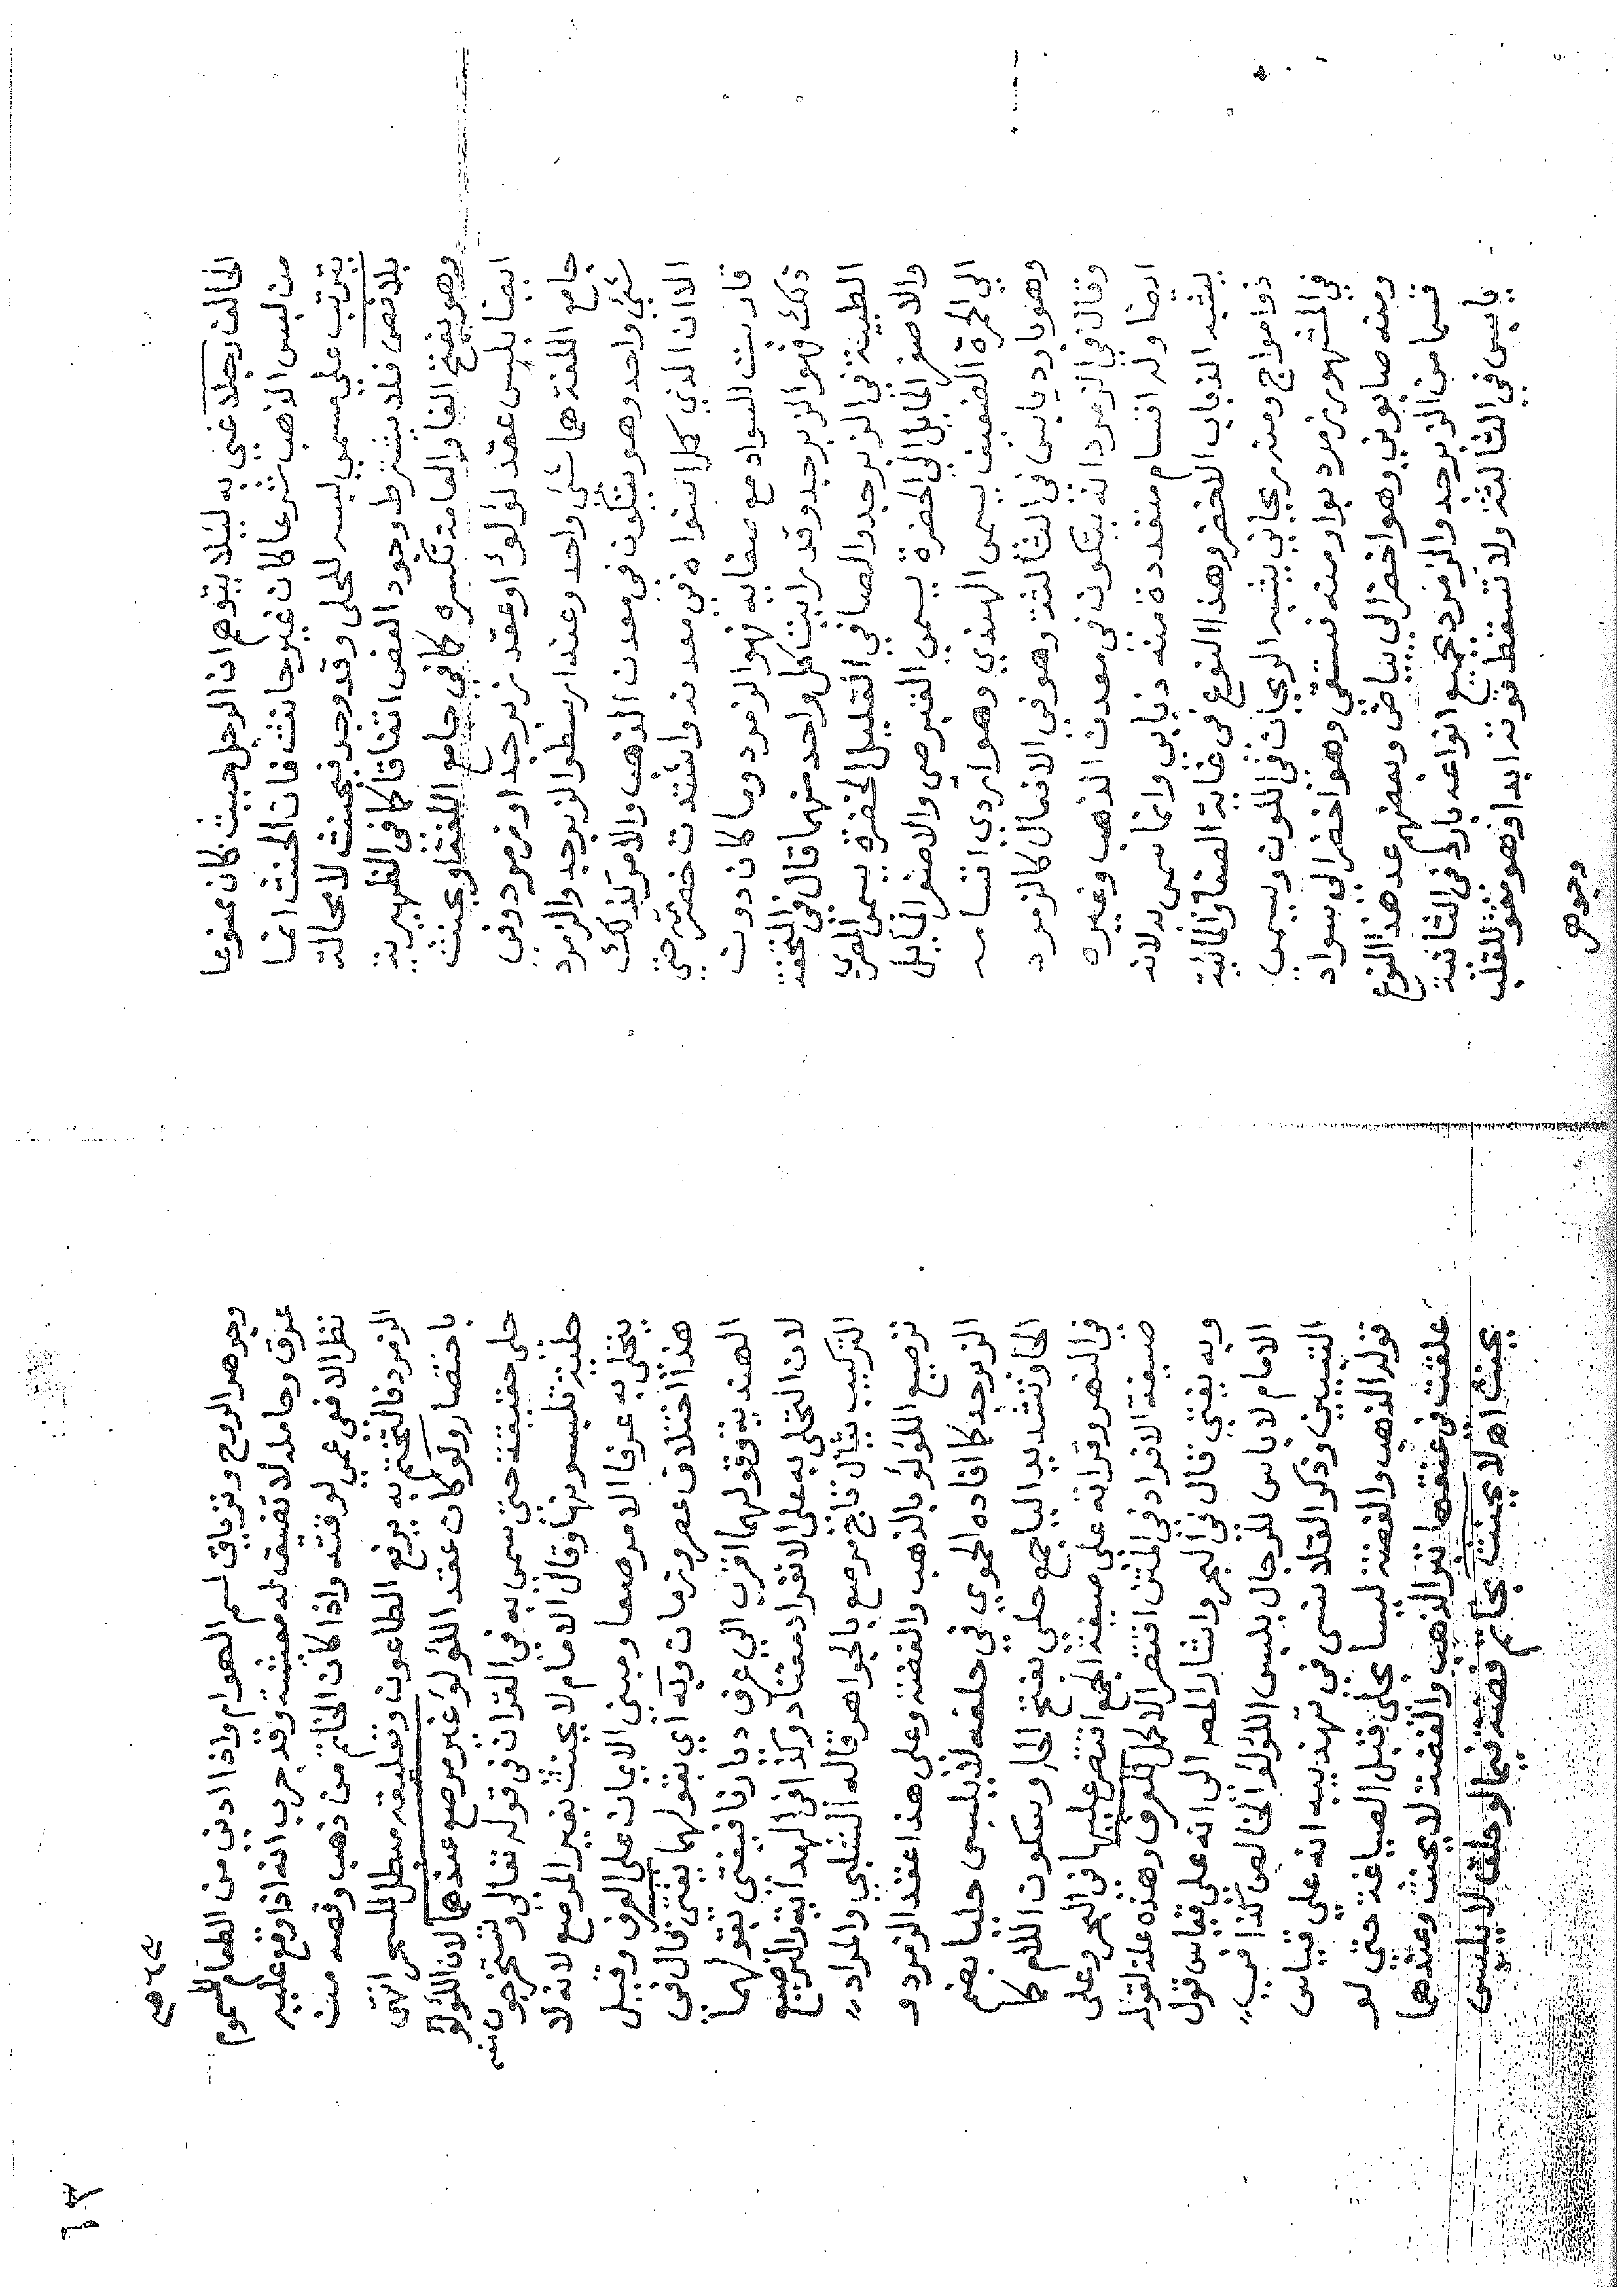 الحالف رجلا عني به ليلا يتوهم ان الرجل حيث كان ممنوعا
من لبس الذهب شرعا كان غير حانث فان الحنث انما
يترتب علي مسمي لبسه للحلى وقد وجد فيحنث لا محالة
بلا فص فلا يشترط وجود الفص اتفاقا كما في الظهيرية
وهو بفتح الفا والعامة تكسره كما في جامع اللغة او يحنث
ايضا بلبس عقد لؤلؤ او عقد زبرجد او زمرد وفي
جامع اللغة هما شئ واحد وعند ارسطو الزبرجد والزمرد
شئ واحد وهو يتكون في معدن الذهب والامر كذلك
الا ان الذي كلما استواه في معدنه واشتدت خضرته حتي
قاربت للسواد مع صفايه فهو الزمرد وما كان دون
ذلك فهو الزبرجد وقد رايت كل واحد منهما قال في التحفة
الطبية في الزبرجد والصافي القليل الخضرة يسمي المصري
والاصفر المايل الي الخضرة يسمي القبرصي والاصفر المايل
الي الحمرة الضعيف يسمي الهندي وهو اردي اقسامه
وهو بارد يابس في الثالثة وهو في الافعال كالزمرد
وقال في الزمرد انه يتكون في معدن الذهب وغيره
ايضا وله اقسام متعددة منه ذبابي وانما سمي به لانه
يشبه الذباب الاخضر وهذا النوع في غاية الصفا والمائية
ذو امواج ومنه ريحاني يشبه الريحان في اللون ويسمي
في المشهور زمرد بواد ومنه سلقي وهو اخضر الي سواد
ومنه صابوني وهو اخضر الي بياض وبعضهم عد هذا النوع
قسما من الزبرجد والزمرد بجميع انواعه بارد في الثانية
يابس في الثالثة ولا تسقط قوته ابدا وهو مقو للقلب
وجوهر
وجوهر الروح وترياق لسم الهوام واذا ادني من الطعام المسموم
عرق وحامله لا تضيق له معيشة وقد جرب انه اذا وقع عليه
نظر الافعي عمي لوقته واذا كان الخاتم من ذهب وفصه من
الزمرد فالتختم به يرفع الطاعون وتعليقه مبطل للسحر انتهى
باختصار ولو كان عقد اللؤلؤ غير مرصع عندهما لان اللؤلؤ
حلى حقيقة حتى سمي به في القران في قوله تعالي وتستخرجون منه
حلية تلبسونها وقال الامام لا يحنث بغير المرصع لانه لا
يتحلي به عرفا الا مرصعا ومبني الايمان علي العرف وقيل
هذا اختلاف عصر وزمان وبه اي بقولهما يفتى قال في
الهندية فقولهما اقرب الي عرف ديارنا فيفتي بقولهما
لان التحلي به علي الانفراد معتاد وكذا في الهداية والترصيع
التركيب يقال تاج مرصع بالجواهر قاله الشلبي والمراد
ترصيع اللؤلؤ بالذهب والفضة وعلى هذا عقد الزمرد و
الزبرجد كما افاده الحموي في حلفه لا يلبس حليا بضم
الحا وتشديد اليا جمع حلي بفتح الحا وسكون اللام كما
في النهر وقراته علي صيغة الجمع اقتصر عليها في البحر وعلى
صيغة الافراد في المتن اقتصر الاكمل للعرف وهذه علة لقوله
وبه يفتي قال في البحر واشار المصر الي انه علي قياس قول
الامام لا باس للرجال بلبس اللؤلؤ الخالص كذا في
التبيين وذكر القلانسي في تهذيبه انه علي قياس
قوله الذهب والفضة ليسا بحلي قبل الصياغة حتي لو
علقت في عنقها تبر الذهب والفضة لا يحنث وعندهما
يحنث اهـ لا يحنث بخاتم فضة فيما لو حلف لا يلبس